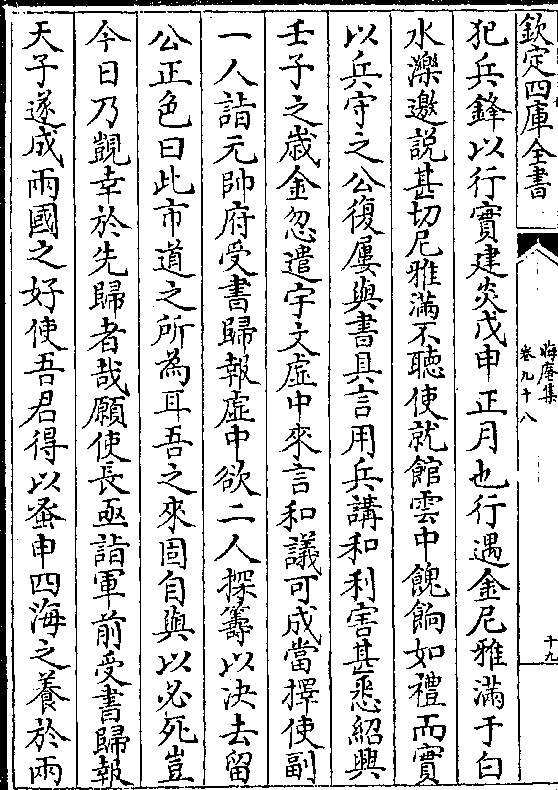 欽定四庫全書
晦庵集
卷九十八
十九
犯兵鋒以行實建炎戊申正月也行遇金尼雅滿于白
水濼邀說甚切尼雅滿不聽使就館雲中餽餉如禮而實
以兵守之公復屢與書具言用兵講和利害甚悉紹興
壬子之歲金忽遣宇文虛中來言和議可成當擇使副
一人詣元帥府受書歸報虛中欲二人探籌以決去留
公正色曰此市道之所為耳吾之來固自與以必死豈
今日乃覬幸於先歸者哉願使長亟詣軍前受書歸報
天子遂成兩國之好使吾君得以蚤申四海之養於兩